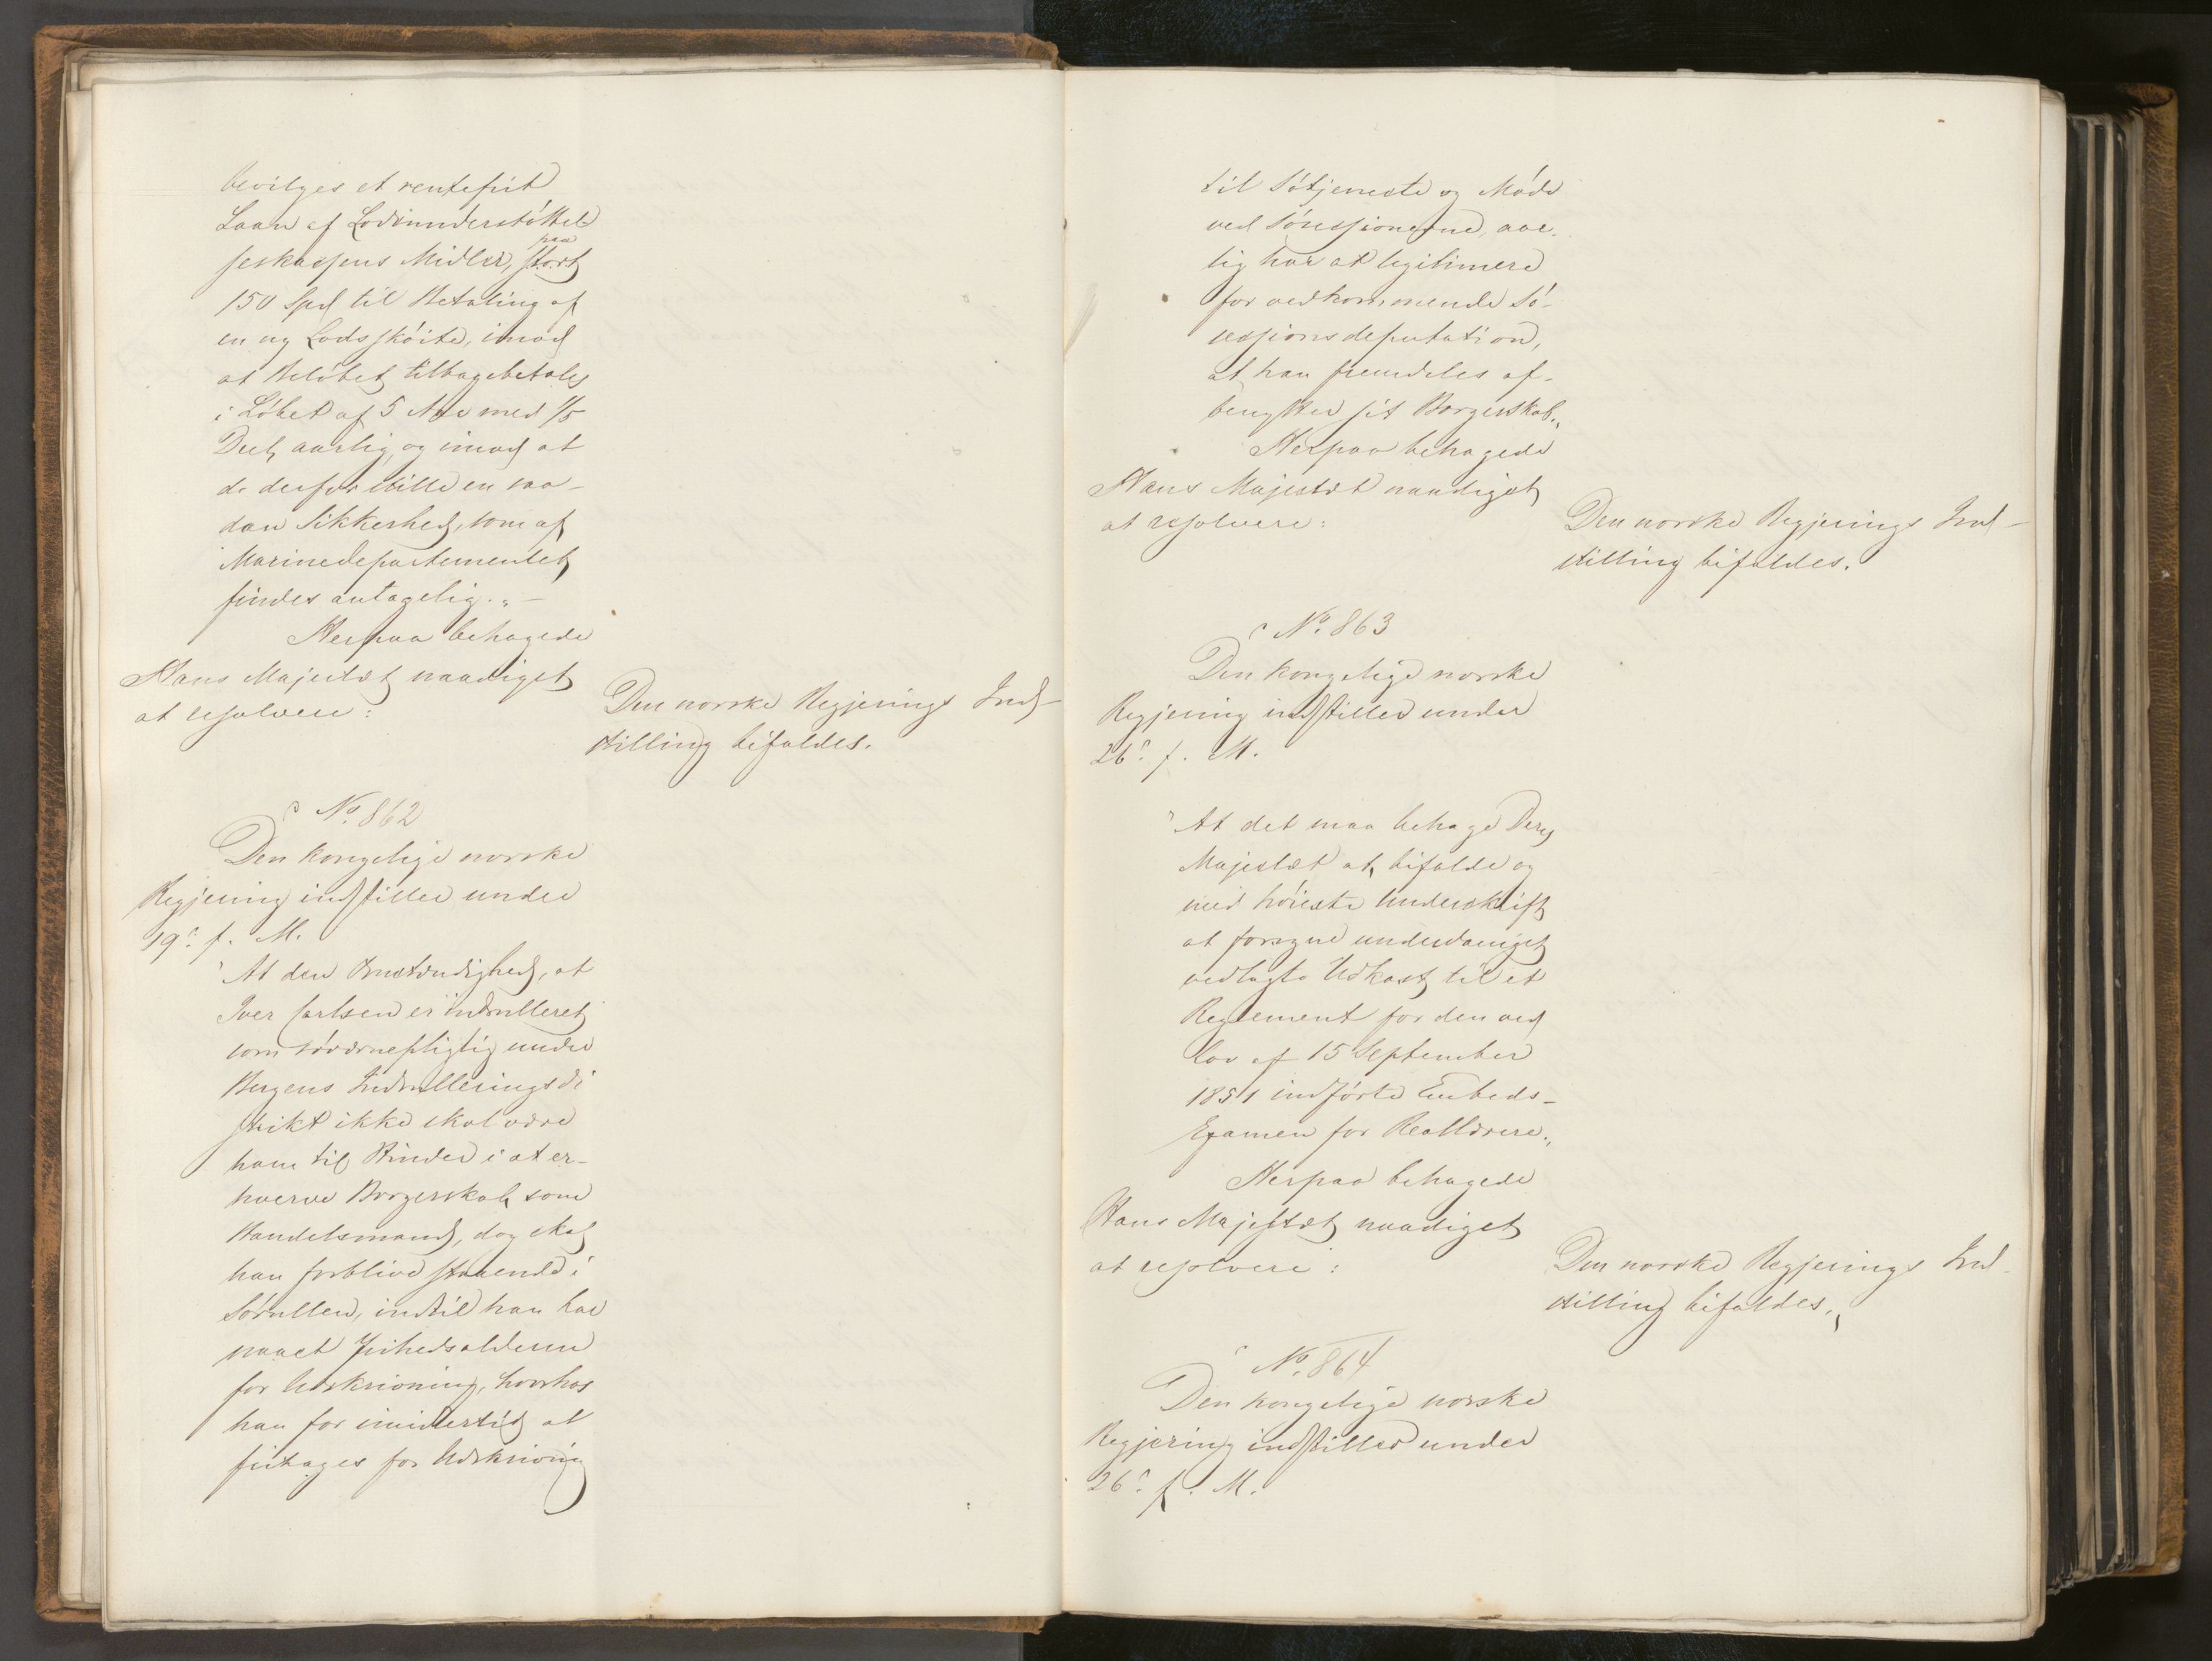 bevilges et rentefrit
Laan af Lodsunderstøttel-
seskassens Midler, stort
paa
150 Spd til Betaling af
en ny Lodsskøite, imod
at Beløbet tilbagebetales
i Løbet af 5 Aar med 1/5
Deel aarlig, og imod at
de derfor stille en saa-
dan Sikkerhed, som af
Marinedepartementet
findes antagelig." –
Herpaa behagede
Hans Majestæt naadigst
at resolvere:
Den norske Regjerings Ind-
stilling bifaldes.
No. 862
Den kongelige norske
Regjering indstiller under
19de f. M.
"At den Omstændighed, at
Iver Carlsen er indrulleret
som søværnepligtig under
Bergens Indrulleringsdi
strikt ikke skal være
ham til Hinder i at er-
hverve Borgerskab som
Handelsmand, dog skal
han forblive staaende i
Sørullen, indtil han har
naaet Frihedsalderen
for Udskrivning, hvorhos
han for imidlertid at
fritages for Udskrivning
til Søtjeneste og Møde
ved Søsessionerne, aar-
lig har at legitimere
for vedkommende Sø-
sessionsdeputation,
at han fremdeles af-
benytter sit Borgerskab."
Herpaa behagede
Hans Majestæt naadigst
at resolvere:
Den norske Regjerings Ind-
stilling bifaldes.
No. 863
Den kongelige norske
Regjering indstiller under
26de f. M.
"At det maa behage Deres
Majestæt at bifalde og
med høieste Underskrift
at forsyne underdanigst
vedlagte Udkast til et
Reglement for den ved
Lov af 15 September
1851 indførte Embeds-
Examen for Reallærere."
Herpaa behagede
Hans Majestæt naadigst
at resolvere:
Den norske Regjerings Ind-
stilling bifaldes."
No. 864
Den kongelige norske
Regjering indstiller under
26de f. M.